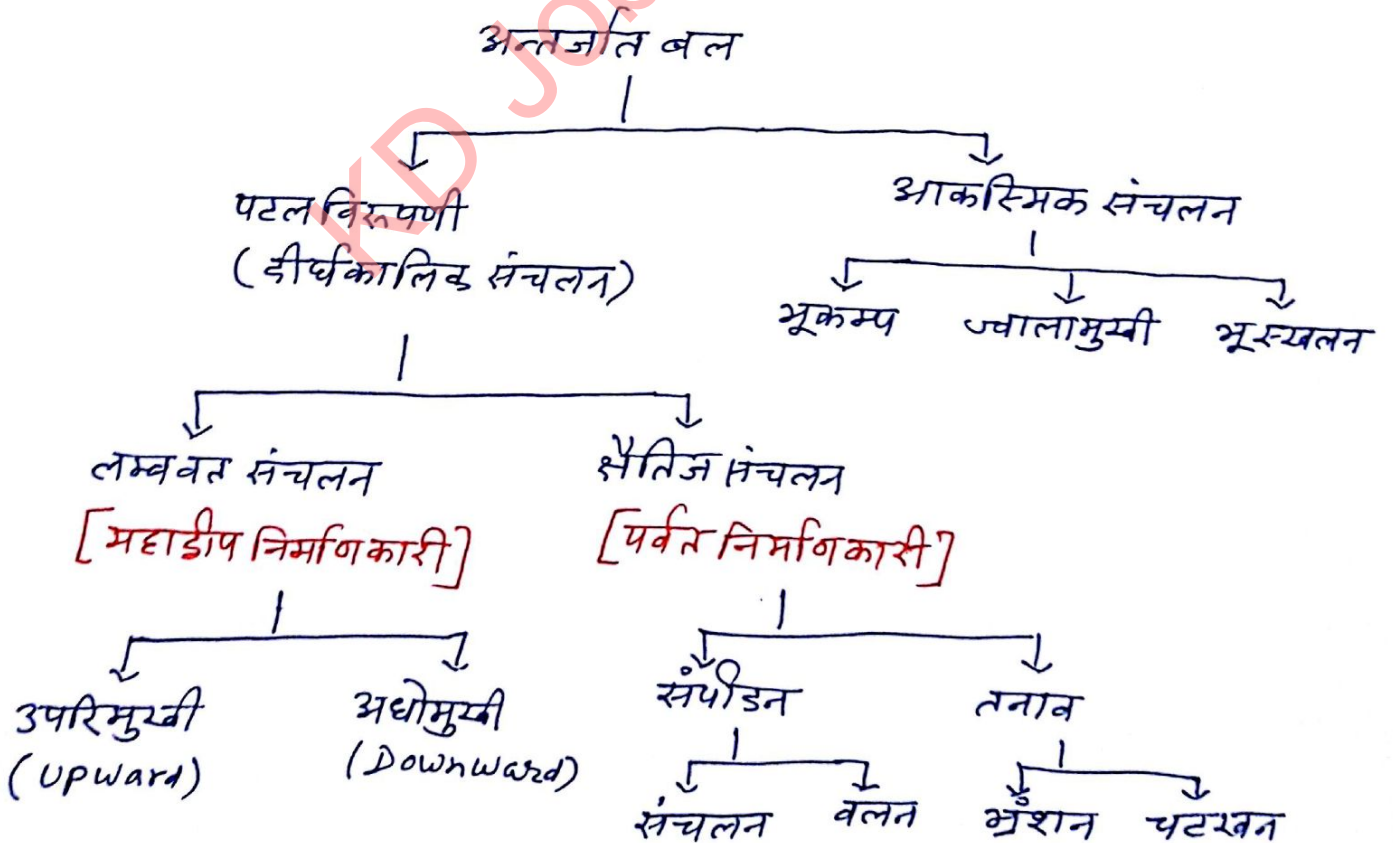 अन्तर्जात बल
KD Job
पटल विरूपणी
(दीर्घकालिक संचलन)
आकस्मिक संचलन
भूकम्प ज्वालामुखी भूस्खलन
लम्बवत संचलन
[महाद्वीप निर्माणकारी]
क्षैतिज संचलन
[पर्वत निर्माणकारी]
उपरिमुखी
(Upward)
अधोमुखी
(Downward)
संपीडन
तनाव
संचलन वलन
भ्रंशन चटखन